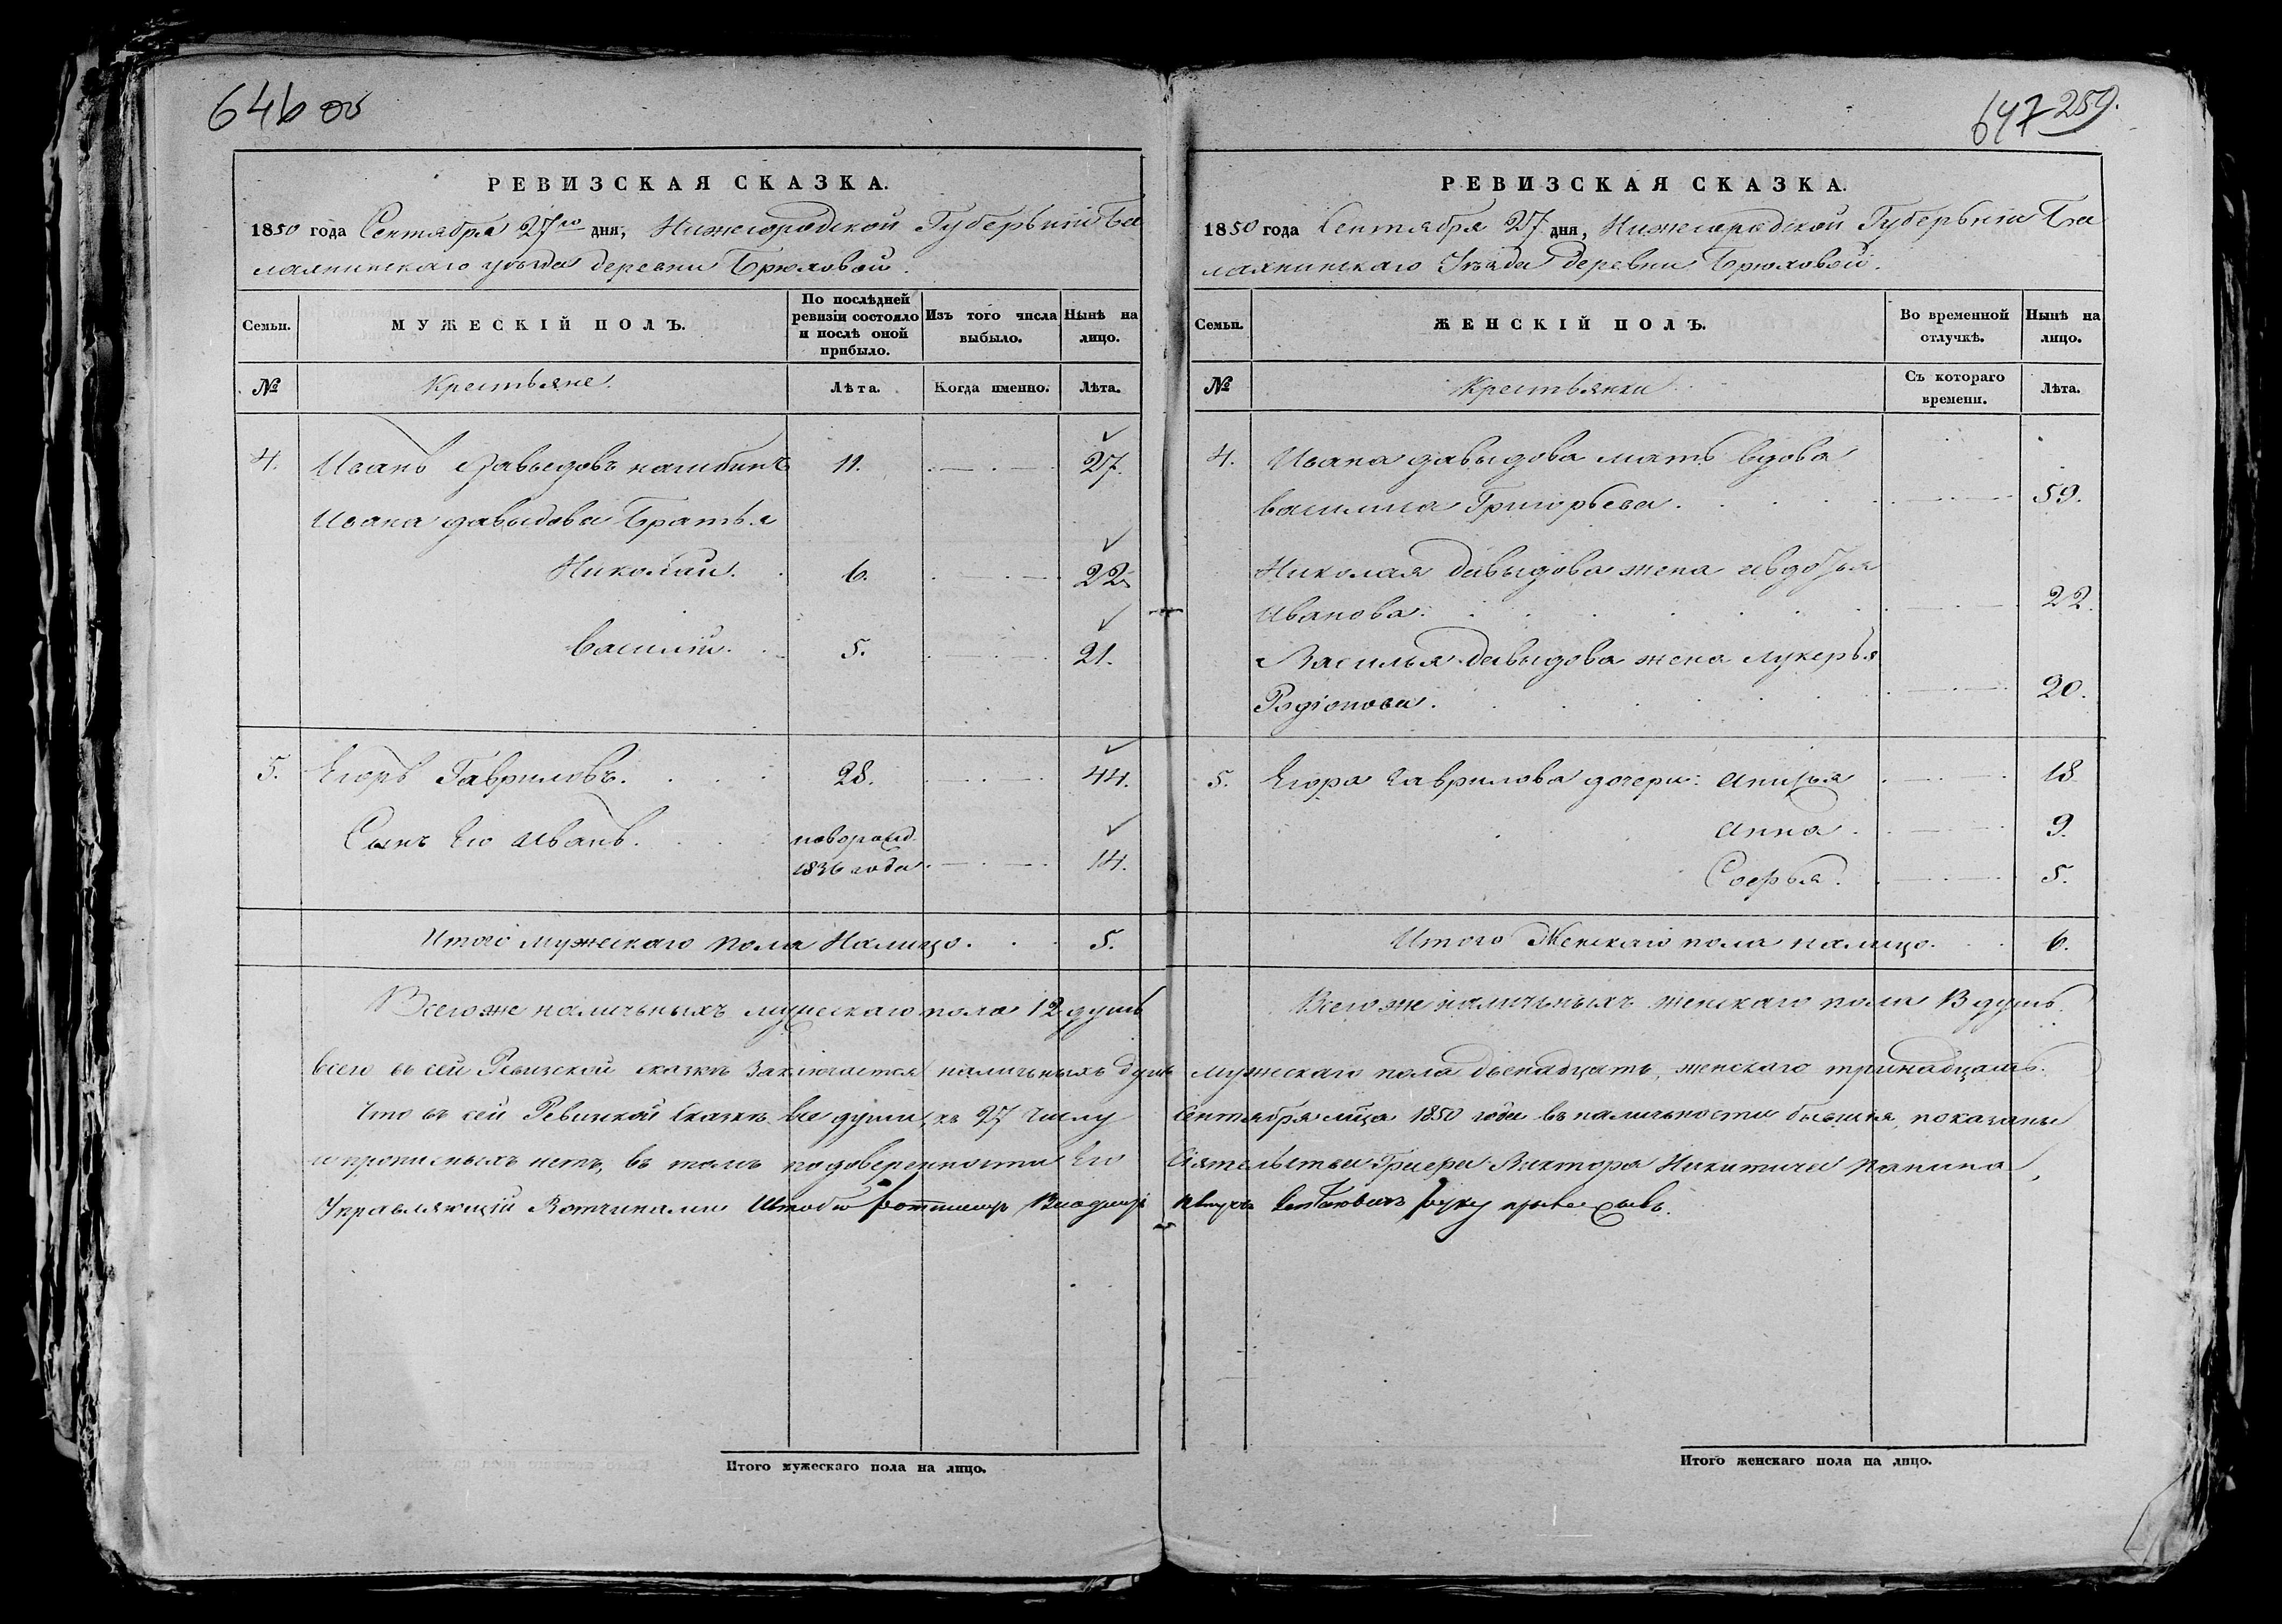 646 об
РЕВИЗСКАЯ СКАЗКА.
1850 года Сентября 27го дня, Нижегородской Губерьнии Ба
лахнинскаго уѣзда деревни Брюховой.
Семьи.
МУЖЕСКІЙ ПОЛЪ.
По послѣдней ревизіи состояло и послѣ оной прибыло.
Изъ того числа выбыло.
Нынѣ на лицо.
№
Крестьяне.
Лѣта.
Когда именно.
Лѣта.
4. Иванъ Давыдовъ 11. 27.
Ивана давыдова Братья
Николай. 6. 22.
Василій. 5. 21.
5. Егоръ Гавриловъ. 28. 44.
Сынъ Его Иванъ. новорожд.
1836 года 14.
Итого мужескаго пола Налицо. 5.
Всего же наличьныхъ мужескаго пола 12 душъ
всего въ сей Ревизской сказкѣ Заключается наличьныхъ душъ
Что въ сей Ревизской Сказкѣ все души къ 27 числу
и прописныхъ нетъ, въ томъ по доверенности Его
Управляющій Вотчинами Штабсъ Ротмистръ Владимiръ
Итого мужескаго пола на лицо.
647 259.
РЕВИЗСКАЯ СКАЗКА.
1850 года Сентября 27 дня, Нижегородской Губерьнии Ба
лахнинскаго Уѣзда Деревни Брюховой.
Семьи.
ЖЕНСКІЙ ПОЛЪ.
Во временной отлучкѣ.
Нынѣ на лицо.
№
Крестьянки
Съ котораго времени.
Лѣта.
4. Ивана давыдова мать вдова
василиса Григорьева. 59.
Николая Давыдова жена авдотья
Иванова. 22.
Василья Давыдова жена лукерья
Родіонова. 20.
5. Егора Гаврилова дочери: анисья 18
анна. 9.
Софья. 5.
Итого Женскаго пола налицо. 6.
Всего же наличьныхъ женскаго пола 13 душъ.
мужескаго пола двенадцать, женскаго тринадцать.
Сентября мѣца 1850 года въ наличьности бывшія, показаны
Сіятельства Графа Виктора Никитича Панина,
руку приложилъ.
Итого женскаго пола на лицо.